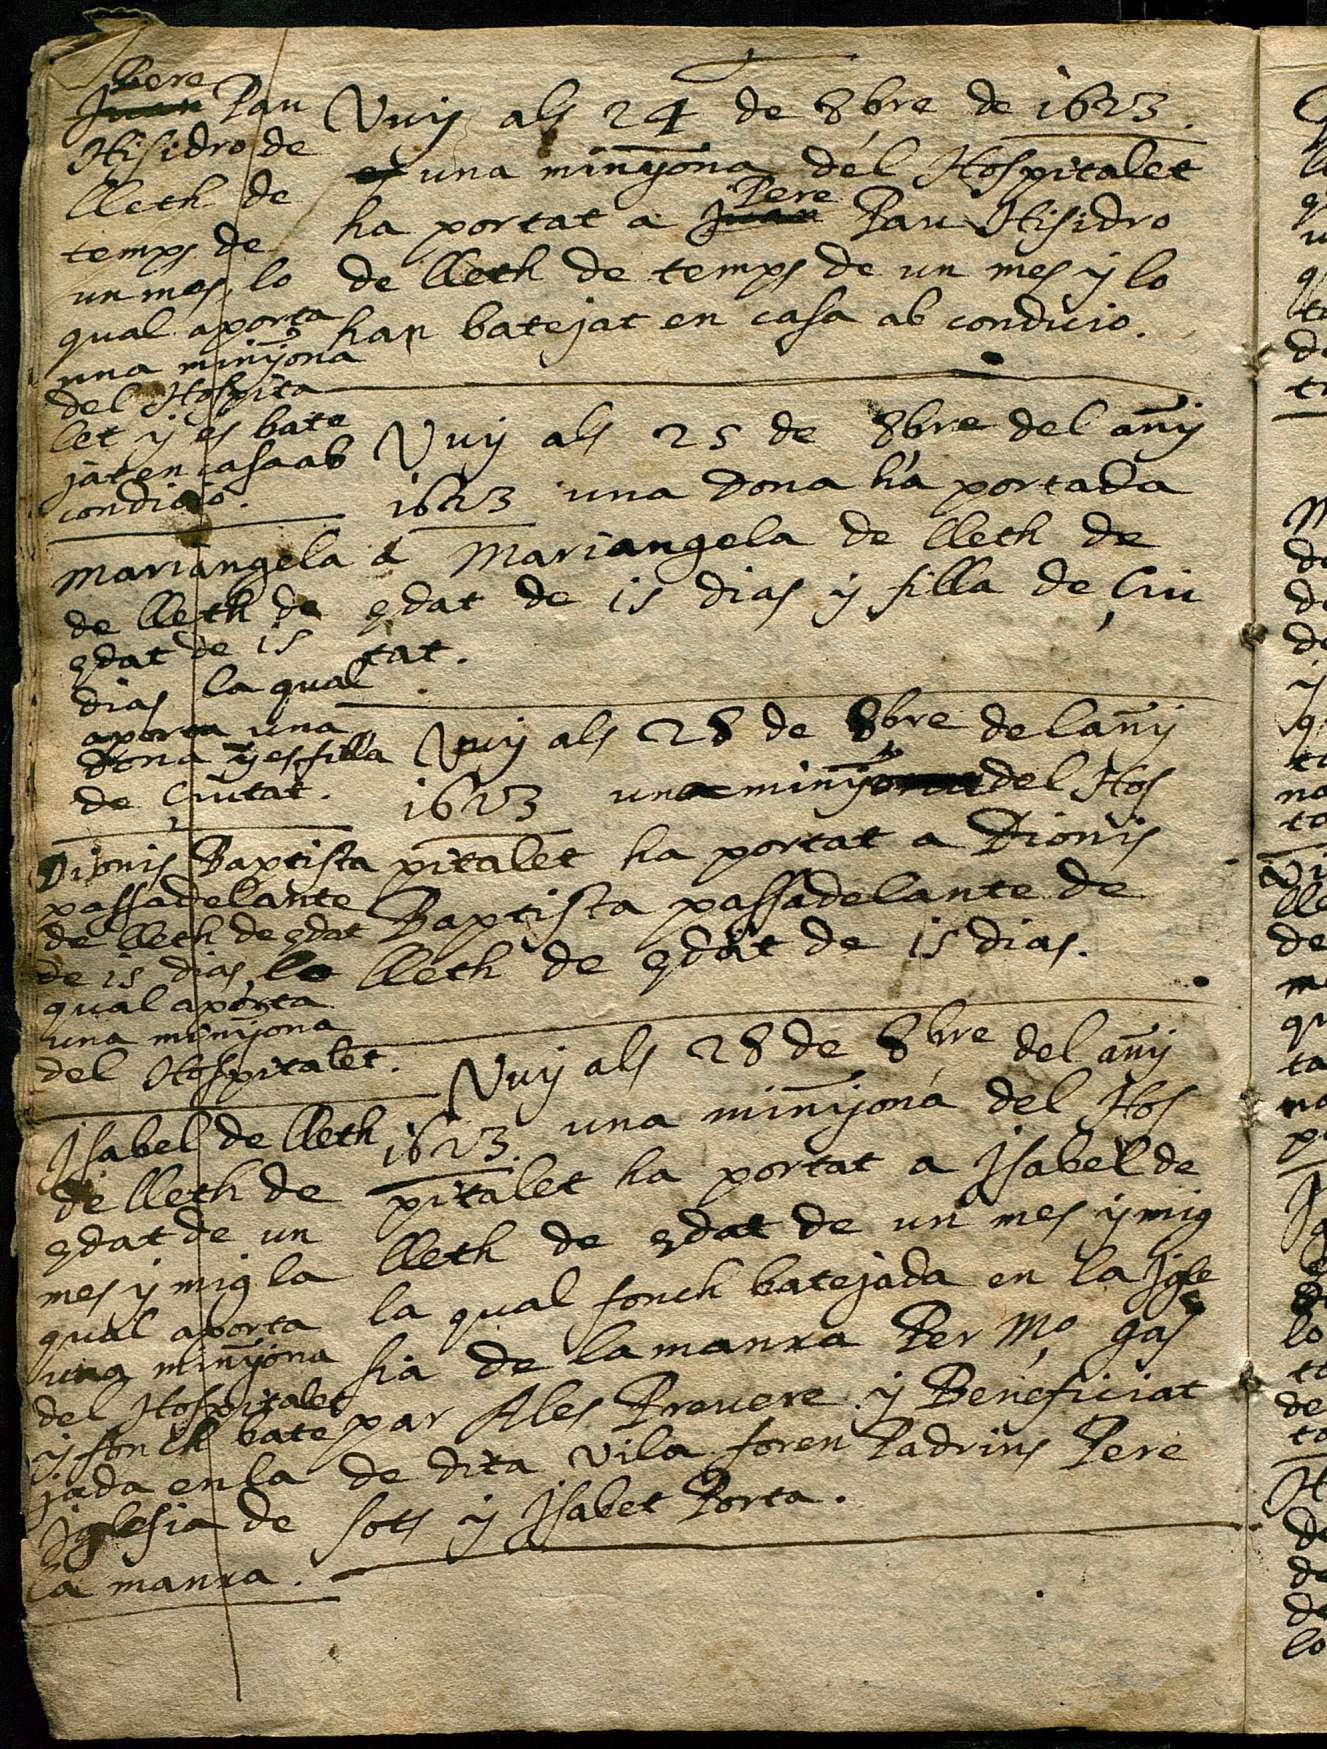 Pere
Juan Pau
Hisidro de
lleth de
temps de
un mes, lo
qual aporta
una minyona
del Hospita
let y es bate
jat en casa ab
condicio.
Vuy als 24 de 8bre de 1623.
una minyona del Hospitalet
ha portat a Juan Pere Pau Hisidro
de lleth de temps de un mes y lo
han batejat en casa ab condicio.
Mariangela
de lleth de
edat de 15
dias la qual
aporta una
Dona y es filla
de Ciutat.
Vuy als 25 de 8bre del añy
1623 una Dona ha portada
a Mariangela de lleth de
edat de 15 dias y filla de Ciu
tat.
Dionis Baptista
passadelante
de lleth de edat
de 15 dias, lo
qual aporta
una minyona
del Hospitalet.
Vuy als 28 de 8bre del añy
1623 una minyona del Hos
pitalet ha portat a Dionis
Baptista passadelante de
lleth de edat de 15 dias.
Isabel de lleth
de lleth de
edat de un
mes y mig la
qual aporta
una minyona
del Hospitalet
y fonch bate
jada en la
Iglesia de
la manxa.
Vuy als 28 de 8bre del añy
1623. una minyona del Hos
pitalet ha portat a Isabel de
lleth de edat de un mes y mig
la qual fonch batejada en la Igle
sia de la manxa Per Mo. Gas
par Ales Prevere y Beneficiat
de dita Vila foren Padrins Pere
Sots y Isabet Porta.